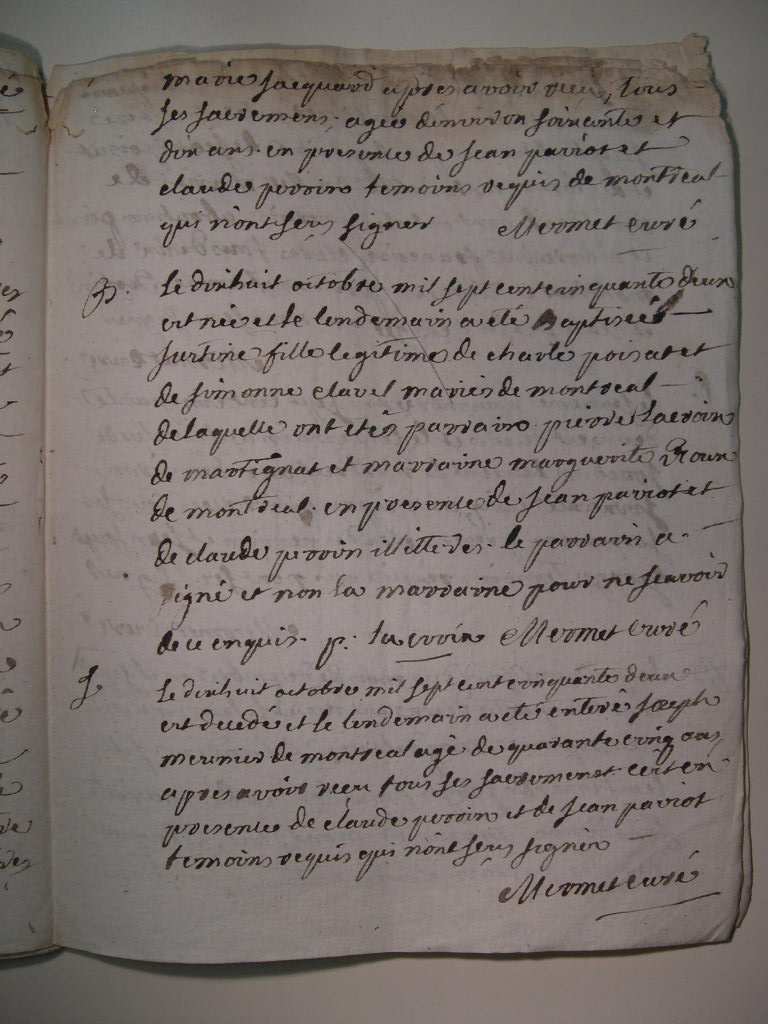 marie Jacquard apres avoir recu, tous
ses sacremens. agée denviron soixante et
dix ans. en presence de jean pariot et
claude perrin temoins requis de montreal
qui n'ont seus signer Mermet curé
B. Le dixhuit octobre mil sept cent cinquante deux
est née et le lendemain a eté baptiseé
justine fille legitime de charle poisat et
de simonne clavel mariés de montreal
de laquelle ont etés parrain pierre Lacroix
de martignat et marraine marguerite Roux
de montreal. en presence de jean pariot et
de claude perrin illitteres. le parrain a
signé et non la marraine pour ne scavoir
de ce enquis. p. lacroix Mermet curé
S Le dixhuit octobre mil sept cent cinquante deux
est decedé et le lendemain a eté enteré Joseph
meunier de montreal agé de quarante cinq ans
apres avoir recu tous ses sacremens et c'est en
presence de claude perrin et de jean pariot
temoins requis qui n'ont seus signer
Mermet curé